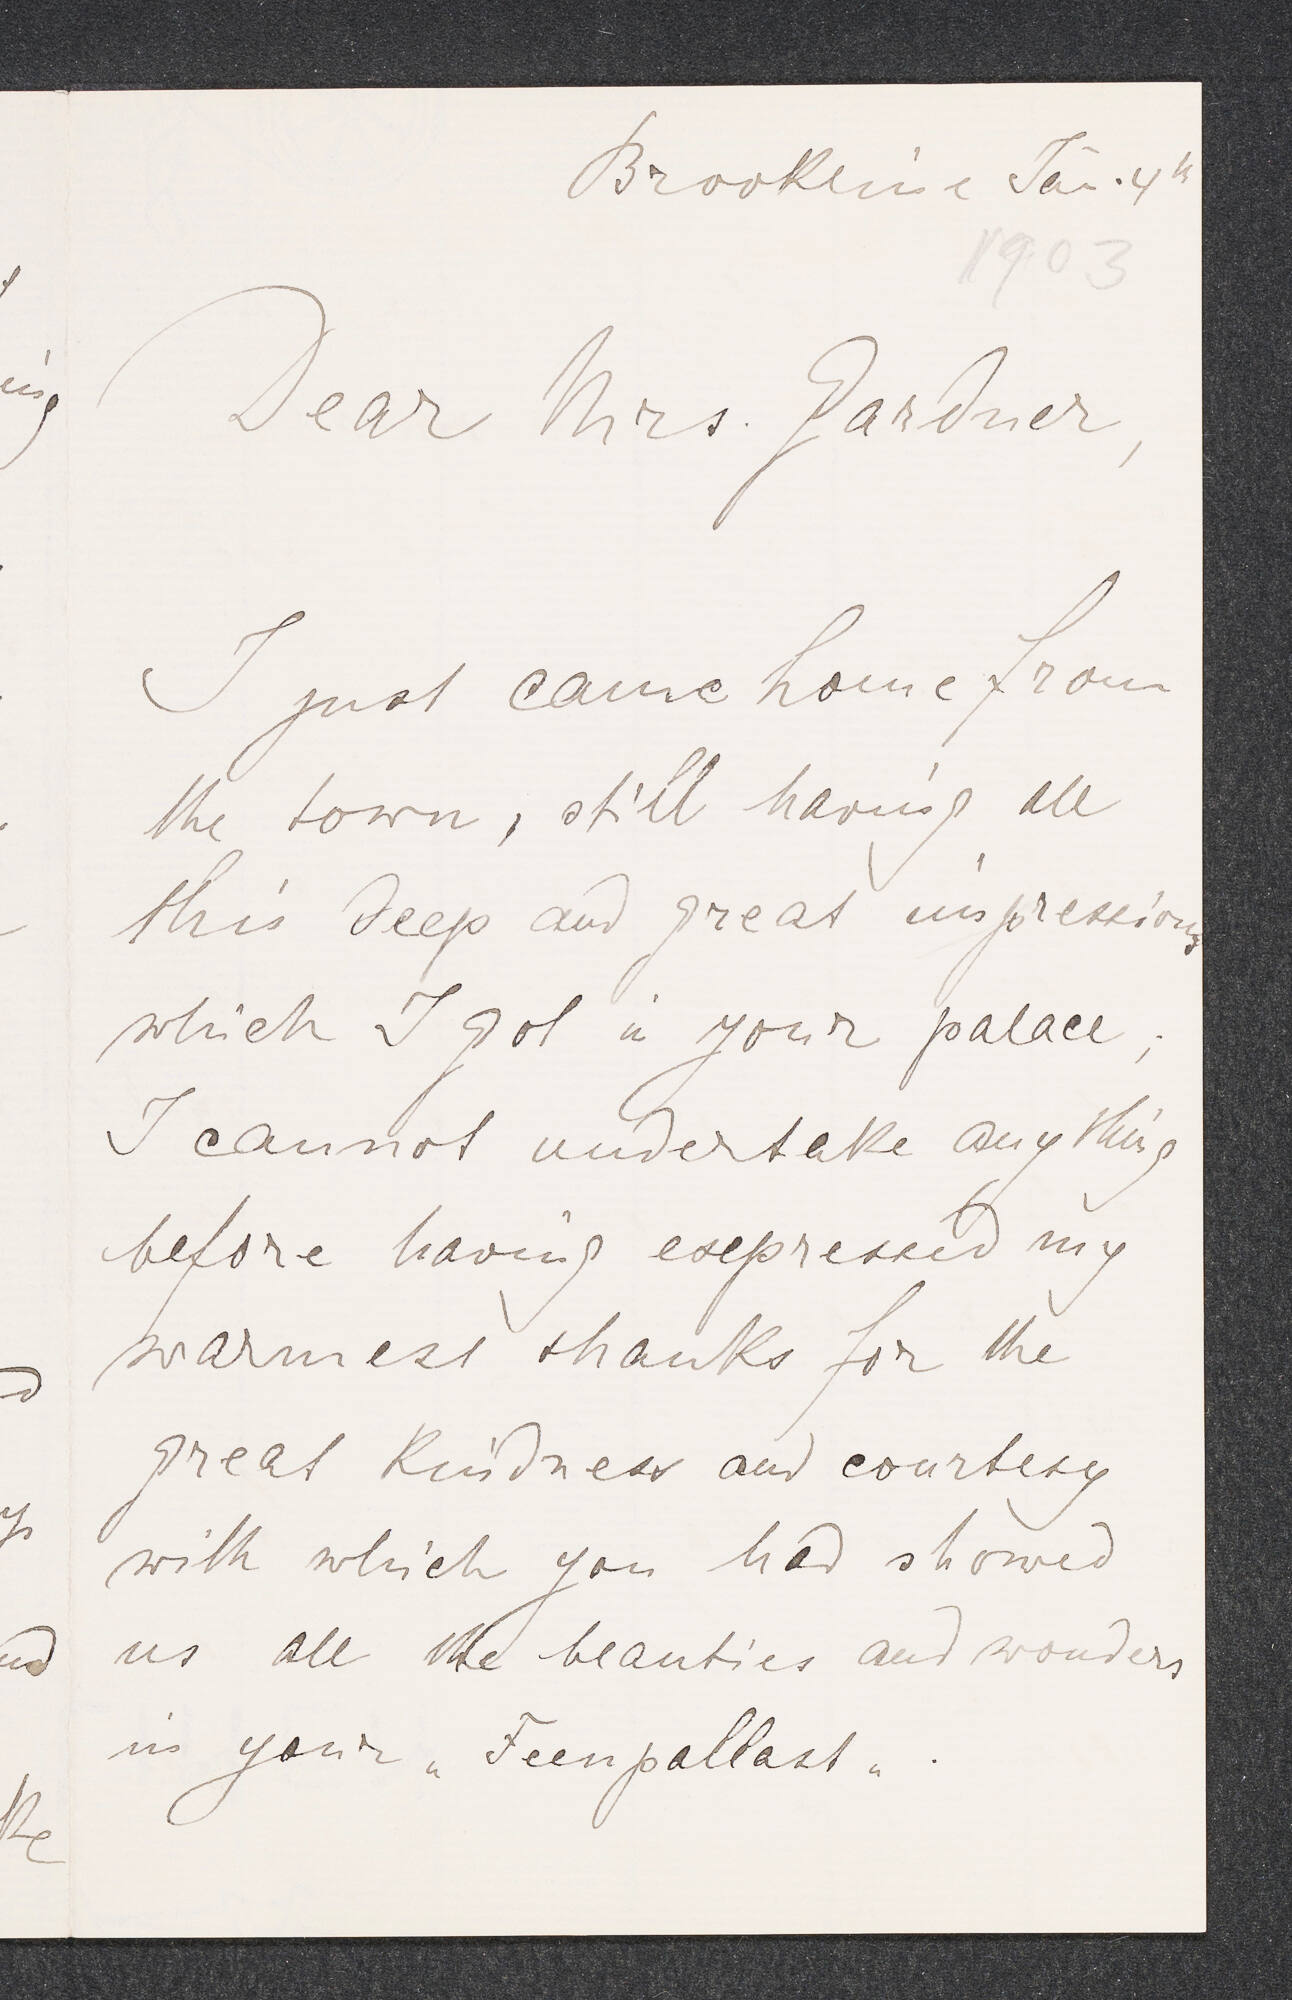 Brookline Jan. 4th
1903
Dear Mrs. Gardner,
I just came home from
the town, still having all
this deep and great impressions
which I got in your palace;
I cannot undertake anything
before having expressed my
warmest thanks for the
great kindness and courtesy
with which you had showed
us all the beauties and wonders
in your „Feenpallast„.